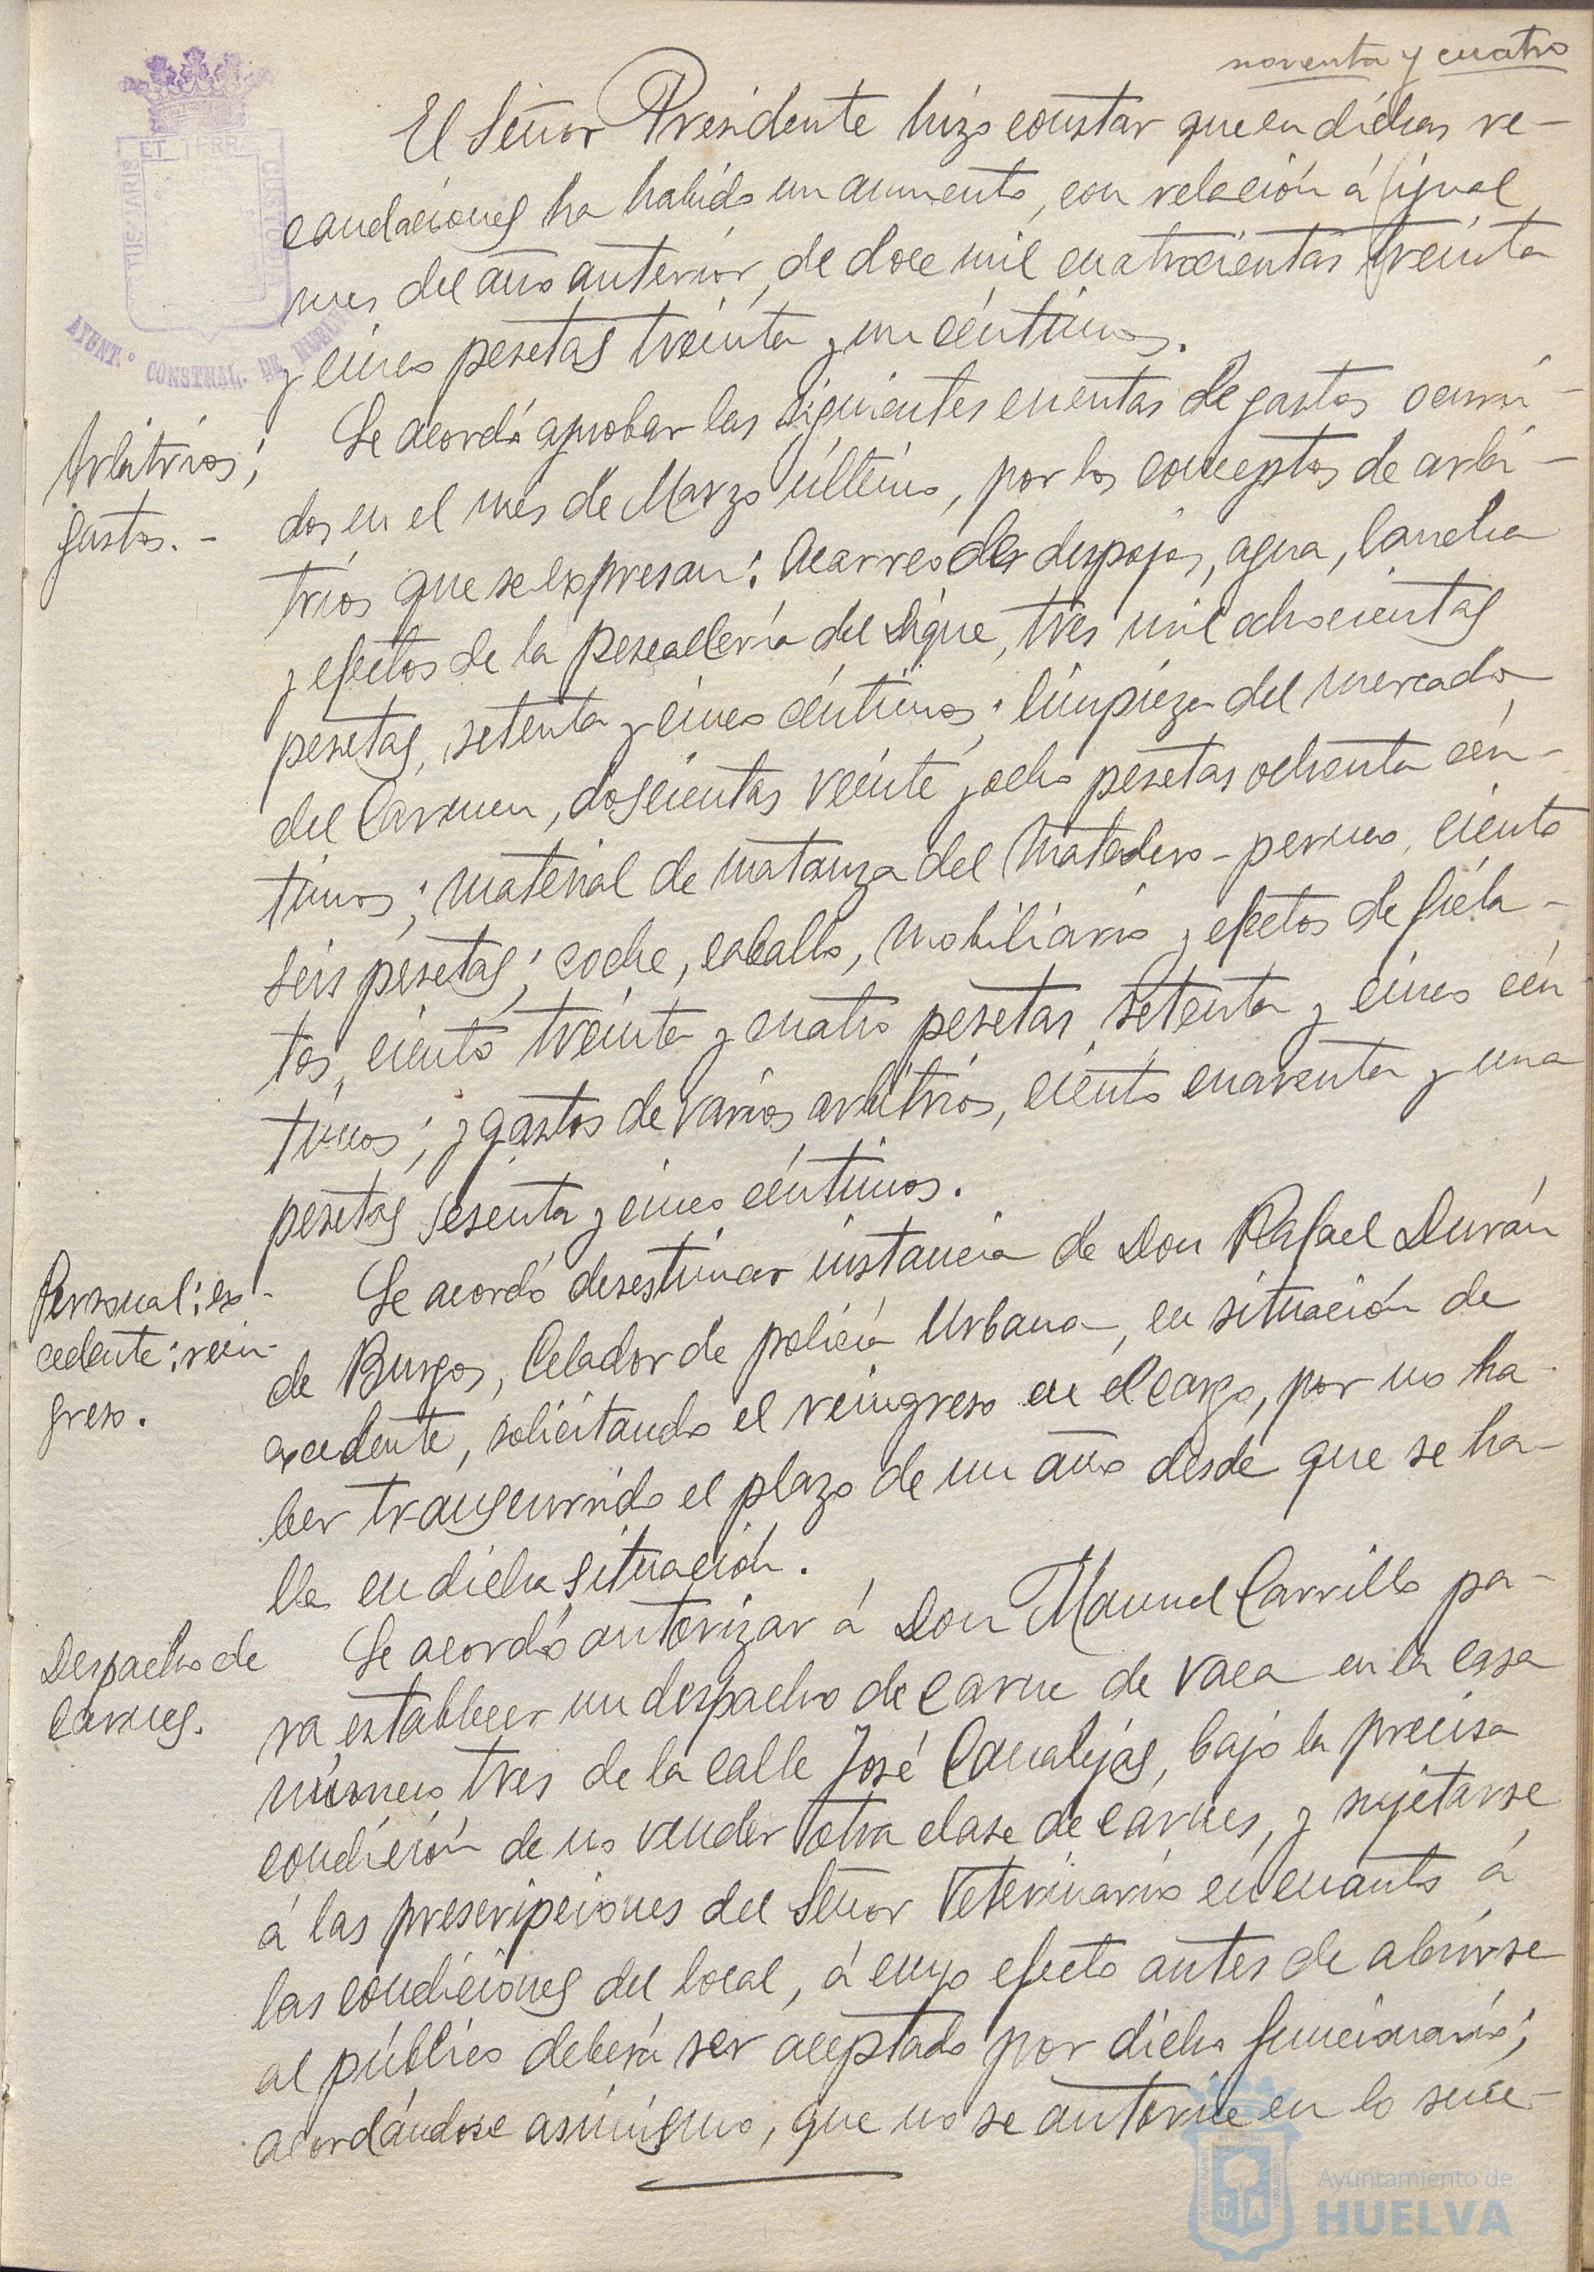 noventa y cuatro
El Señor Presidente hizo constar que en dichas re-
caudaciones ha habido un aumento, con relación á igual
mes del año anterior, de doce mil cuatrocientas treinta
y cinco pesetas treinta y un céntimos.
Arbitrios;
gastos.-
Se acordó aprobar las siguientes cuentas de gastos ocurri-
dos en el mes de Marzo último, por los conceptos de arbi-
trios que se expresan: Acarreo de despojos, agua, lancha
y efectos de la pescadería del Dique, tres mil ochocientas
pesetas, setenta y cinco céntimos; limpieza del mercado
del Carmen, doscientas veinte y ocho pesetas ochenta cén-
timos; material de matanza del Matadero-perneo, ciento
seis pesetas; coche, caballo, mobiliario y efectos de fiela-
tos, ciento treinta y cuatro pesetas setenta y cinco cén
timos; y gastos de varios arbitrios, ciento cuarenta y una
pesetas sesenta y cinco céntimos.
Personal; ex-
cedente; rein-
greso.
Se acordó desestimar instancia de Don Rafael Durán
de Burgos, Celador de policía Urbana, en situación de
excedente, solicitando el reingreso en el cargo, por no ha-
ber transcurrido el plazo de un año desde que se ha-
lla en dicha situación.
Despacho de
carnes.
Se acordó autorizar á Don Manuel Carrillo pa-
ra establecer un despacho de carne de vaca en la casa
número tres de la calle José Canalejas, bajo la precisa
condición de no vender otra clase de carnes, y sujetarse
á las prescripciones del Señor Veterinario en cuanto á
las condiciones del local, á cuyo efecto antes de abrirse
al público deberá ser aceptado por dicho funcionario;
acordándose asimismo, que no se autorice en lo suce-
AYUNT.º CONSTNAL. DE HUELVA
Ayuntamiento de
HUELVA